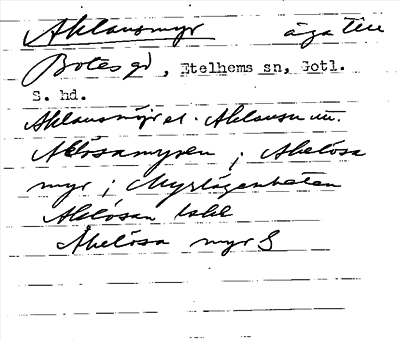 Aklausmyr äga till
Botes gd, Etelhems sn, Gotl.
S. hd.
Aklausmyr el. Aklausu m.
Aklosamyren; Akelösa
myr; Myrlägenheten
Aklösan kald
Akelösa myr S